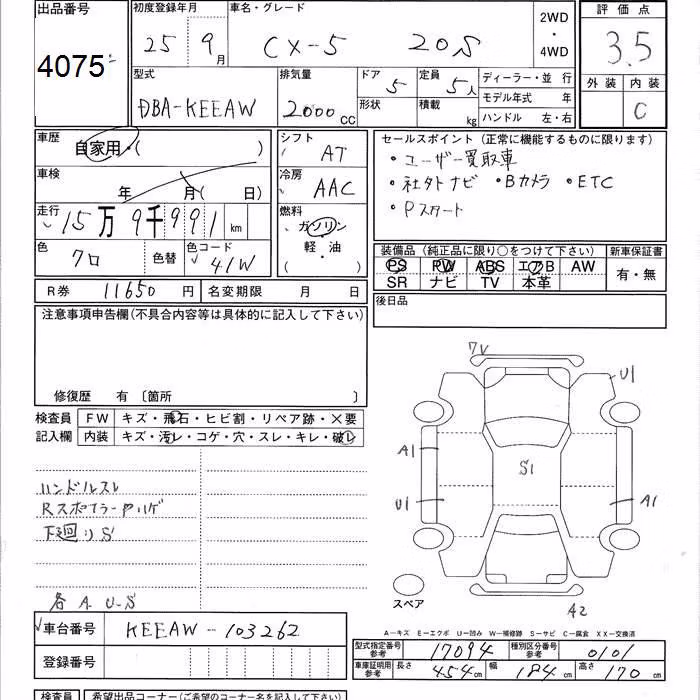 出品番号 初度登録年月 車名・グレード 2WD・4WD 評価点
4075 25 9月 CX-5 20S 3.5
外装 内装 C
型式 排気量 ドア 5 定員 5人 ディーラー・並行
DBA-KEEAW 2000CC 形状 積載 kg モデル年式 年
ハンドル 左・右
車歴 自家用・( ) シフト AT セールスポイント (正常に機能するものに限ります)
・ユーザー買取車
車検 年 月( 日) 冷房 AAC ・社外ナビ ・Bカメラ ・ETC
・Pスタート
走行 15万9千991km 燃料 ガソリン 軽・油 ( )
色 クロ 色替 色コード 41W
装備品 (純正品に限り○をつけて下さい) 新車保証書
PS PW ABS エアB AW 有・無
SR ナビ TV 本革
R券 11650円 名変期限 月 日 後日品
注意事項申告欄(不具合内容等は具体的に記入して下さい)
修復歴 有 〔箇所 〕
検査員 FW キズ・飛石・ヒビ割・リペア跡・×要
記入欄 内装 キズ・汚レ・コゲ・穴・スレ・キレ・破レ
ハンドルスレ
Rスポイラーヤハゲ
下廻りS
各A.U-S
7V
U1
A1
S1
U1
A1
A2
スペア
車台番号 KEEAW-103262
登録番号
A―キズ E―エクボ U―凹み W―補修跡 S―サビ C―腐食 XX―交換済
型式指定番号 参考 17094 種別区分番号 参考 0101
車庫証明用 参考 長さ 454cm 幅 184cm 高さ 170cm
検査員 希望出品コーナー(ご希望のコーナー名を記入下さい)